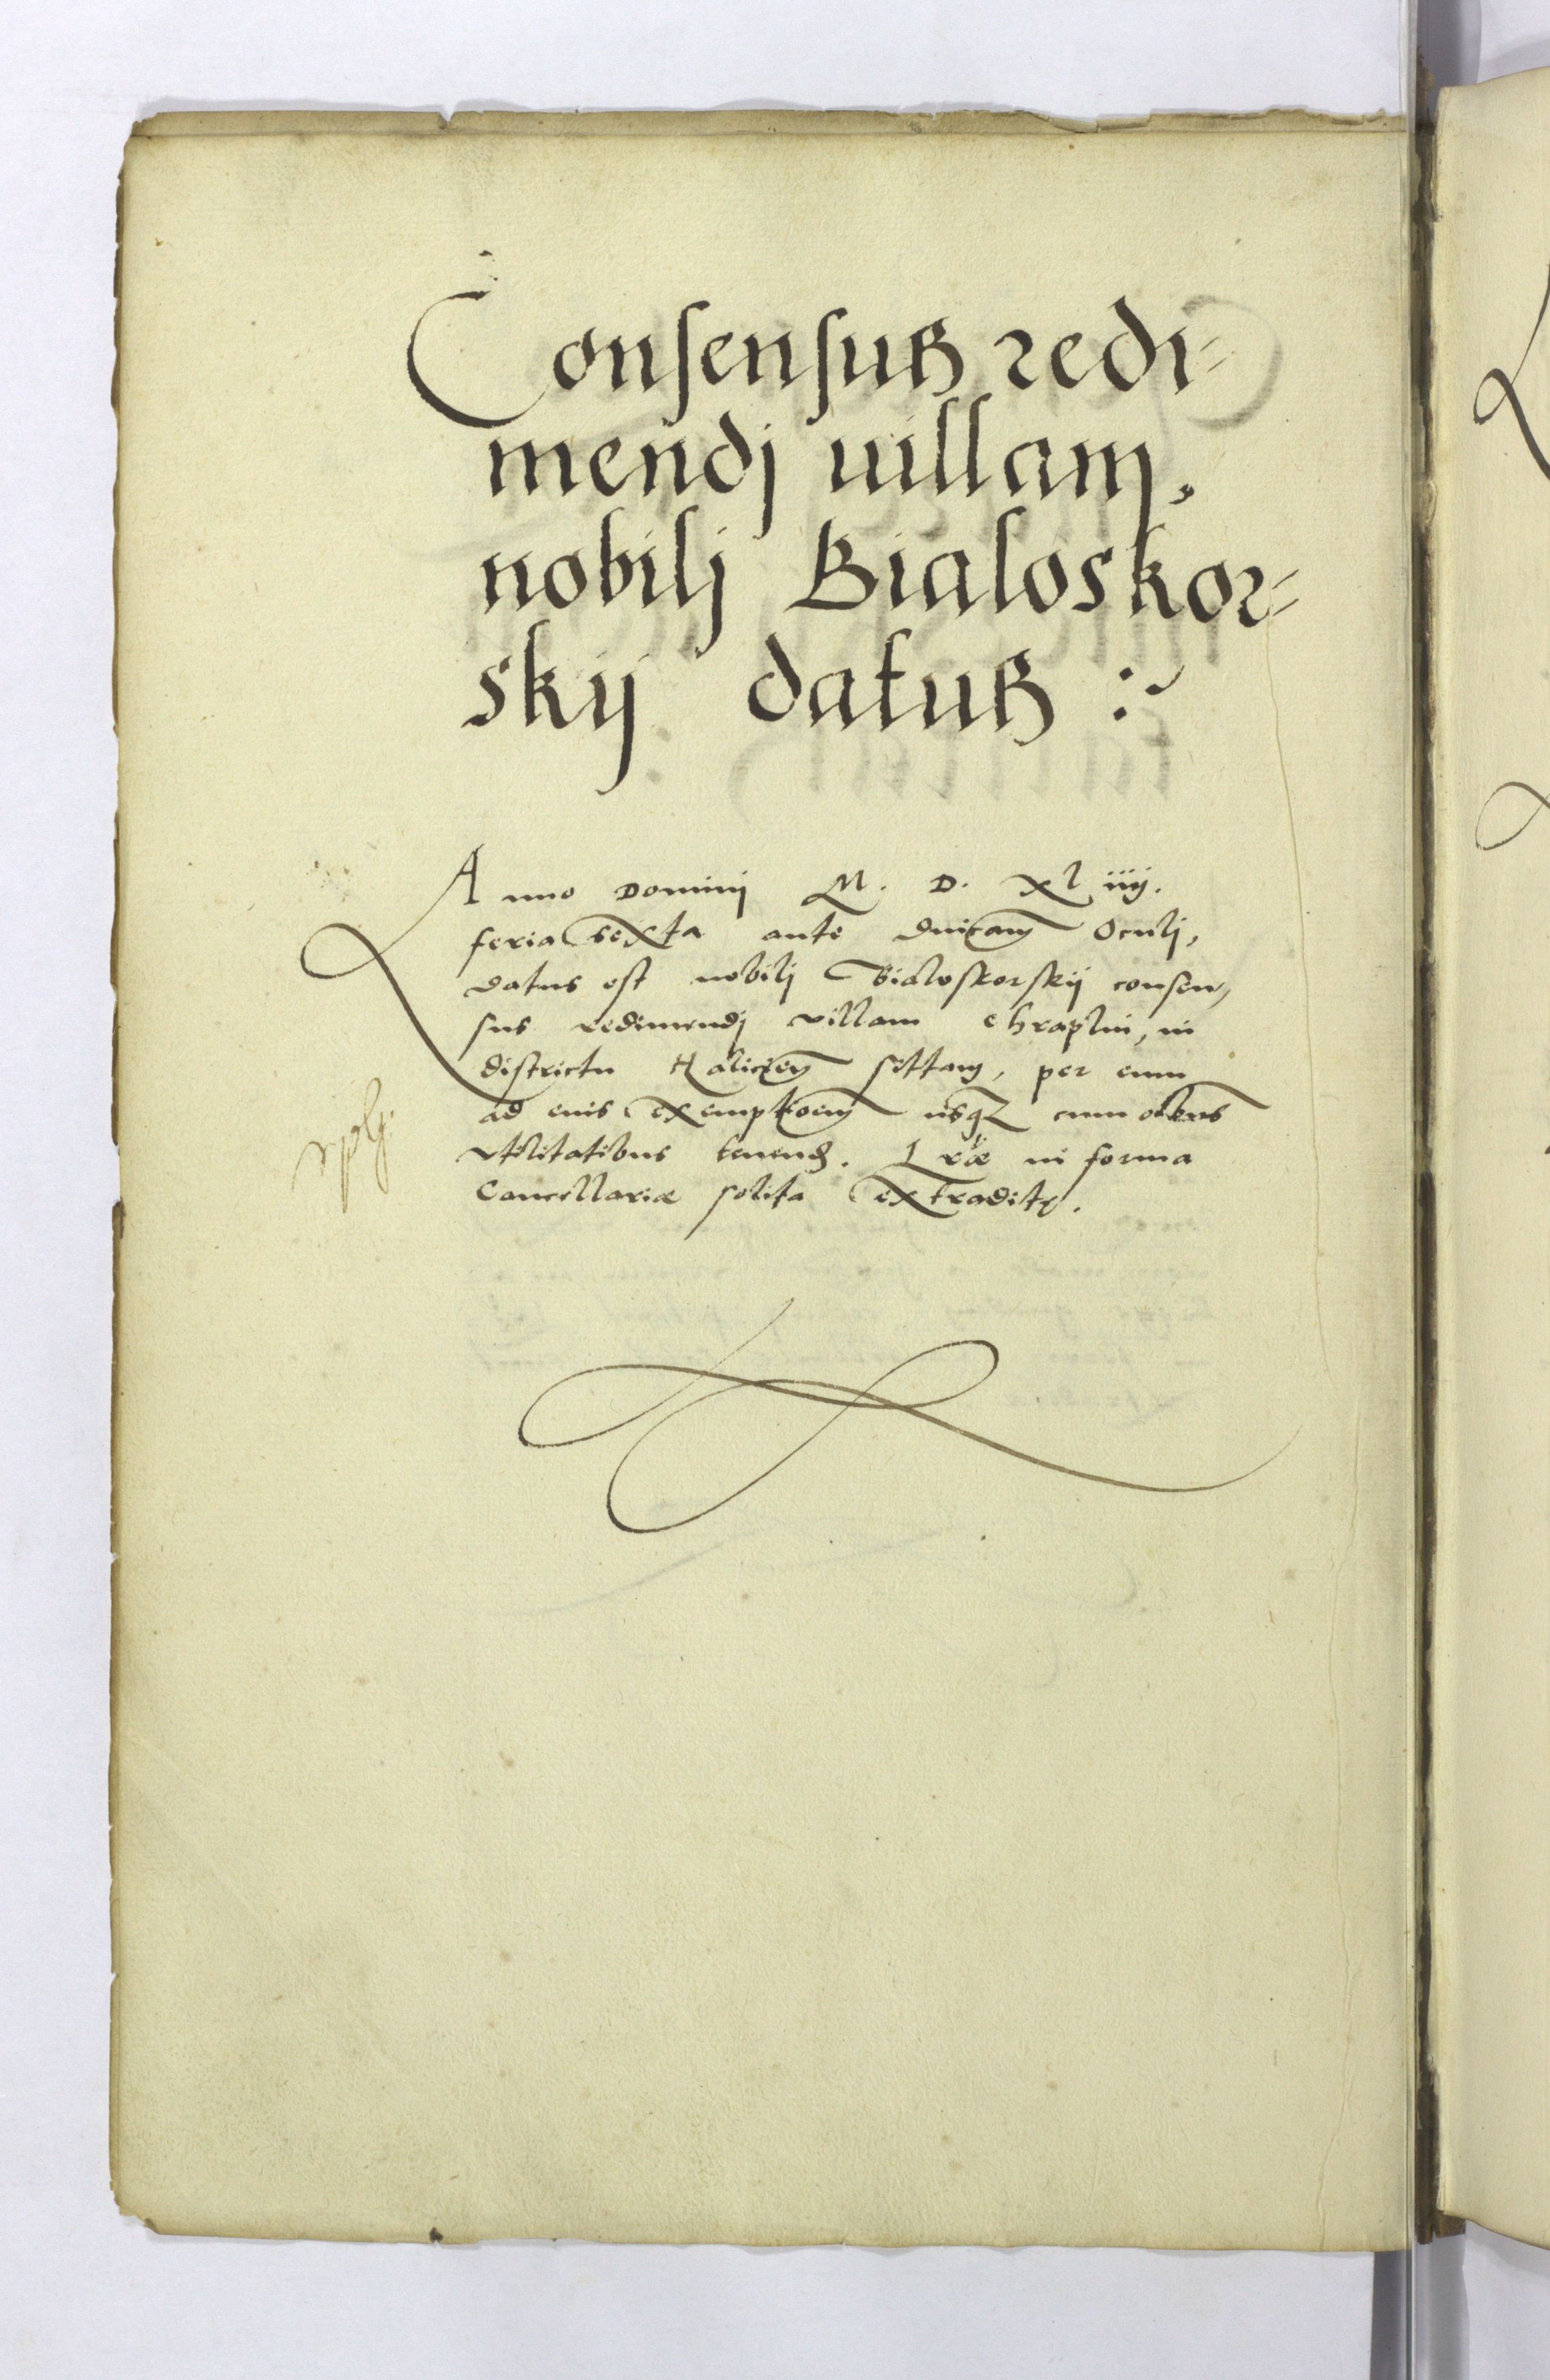 Consensus redi=
mendj uillam,
nobilj Bialoskor=
skij datus :~
Anno Dominj M. D. XLiiij.
feria sexta ante dnicam Oculj,
datus est nobilj Bialoskorskij consen,
sus redimendj villam Chraplin, in
districtu Halicien sittam, per eum
ad euis exemptioem usqz cum oibus
vtilitatibus tenend. Lræ in forma
Cancellariæ solita extraditę.